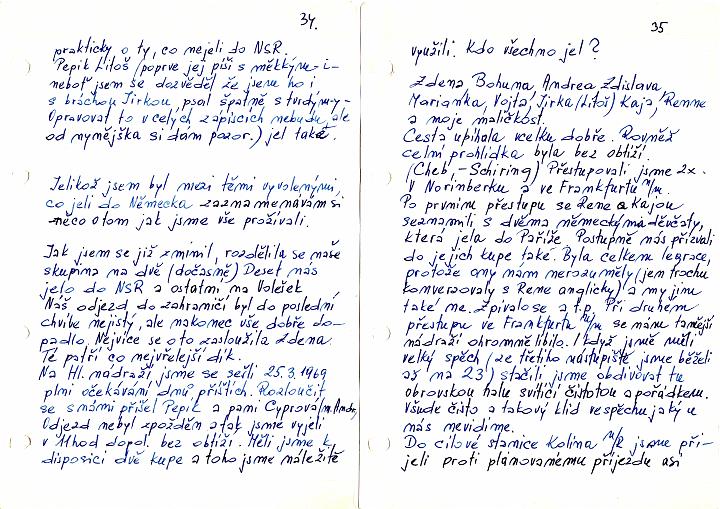 34.
prakticky o ty, co nejeli do NSR.
Pepík Litoš (poprvé jej píši s měkkým -i-
neboť jsem se dozvěděl že jsem ho i
s bráchou Jirkou, psal špatně s tvrdým -y-
Opravovat to v celých zápisech nebudu, ale
od nynějška si dám pozor.) jel také.
Jelikož jsem byl mezi těmi vyvolenými,
co jeli do Německa zaznamenávám si
něco o tom jak jsme vše prožívali.
Jak jsem se již zmínil, rozdělila se naše
skupina na dvě (dočasně) Deset nás
jelo do NSR a ostatní na Voleček
Náš odjezd do zahraničí byl do poslední
chvíle nejistý, ale nakonec vše dobře do-
padlo. Nejvíce se o to zasloužila Zdena.
Té patří co nejvřelejší dík.
Na Hl. nádraží jsme se sešli 25.3.1969
plni očekávání dnů příštích. Rozloučit
se s námi přišel Pepík a paní Cyprová
Odjezd nebyl zpožděn a tak jsme vyjeli
v 11hod dopol. bez obtíží. Měli jsme k
disposici dvě kupé a toho jsme náležitě
35
využili. Kdo všechno jel?
Zdena Bohuna Andrea Zdislava
Marianka, Vojta, Jirka (Litoš) Kaja, Renne
a moje maličkost.
Cesta ubíhala vcelku dobře. Rovněž
celní prohlídka byla bez obtíží.
(Cheb, - Schirnding) Přestupovali jsme 2x.
V Norimberku a ve Frankfurtu n/m.
Po prvním přestupu se Rene a Kajou
seznámili s dvěma německýma děvčaty,
která jela do Paříže Postupně nás přizvali
do jejich kupé také. Byla celkem legrace,
protože ony nám nerozuměly (jen trochu
konverzovaly s Rene anglicky) a my jim
také ne. Zpívalo se a t.p. Při druhém
přestupu ve Frankfurtu n/m se nám tamější
nádraží ohromně líbilo. I když jsme měli
velký spěch (ze třetího nástupiště jsme běželi
až na 23) stačili jsme obdivovat tu
obrovskou halu svítící čistotou a pořádkem.
Všude čisto a takový klid ve spěchu jaký u
nás nevidíme.
Do cílové stanice Kolína n/R jsme při-
jeli proti plánovanému příjezdu asi